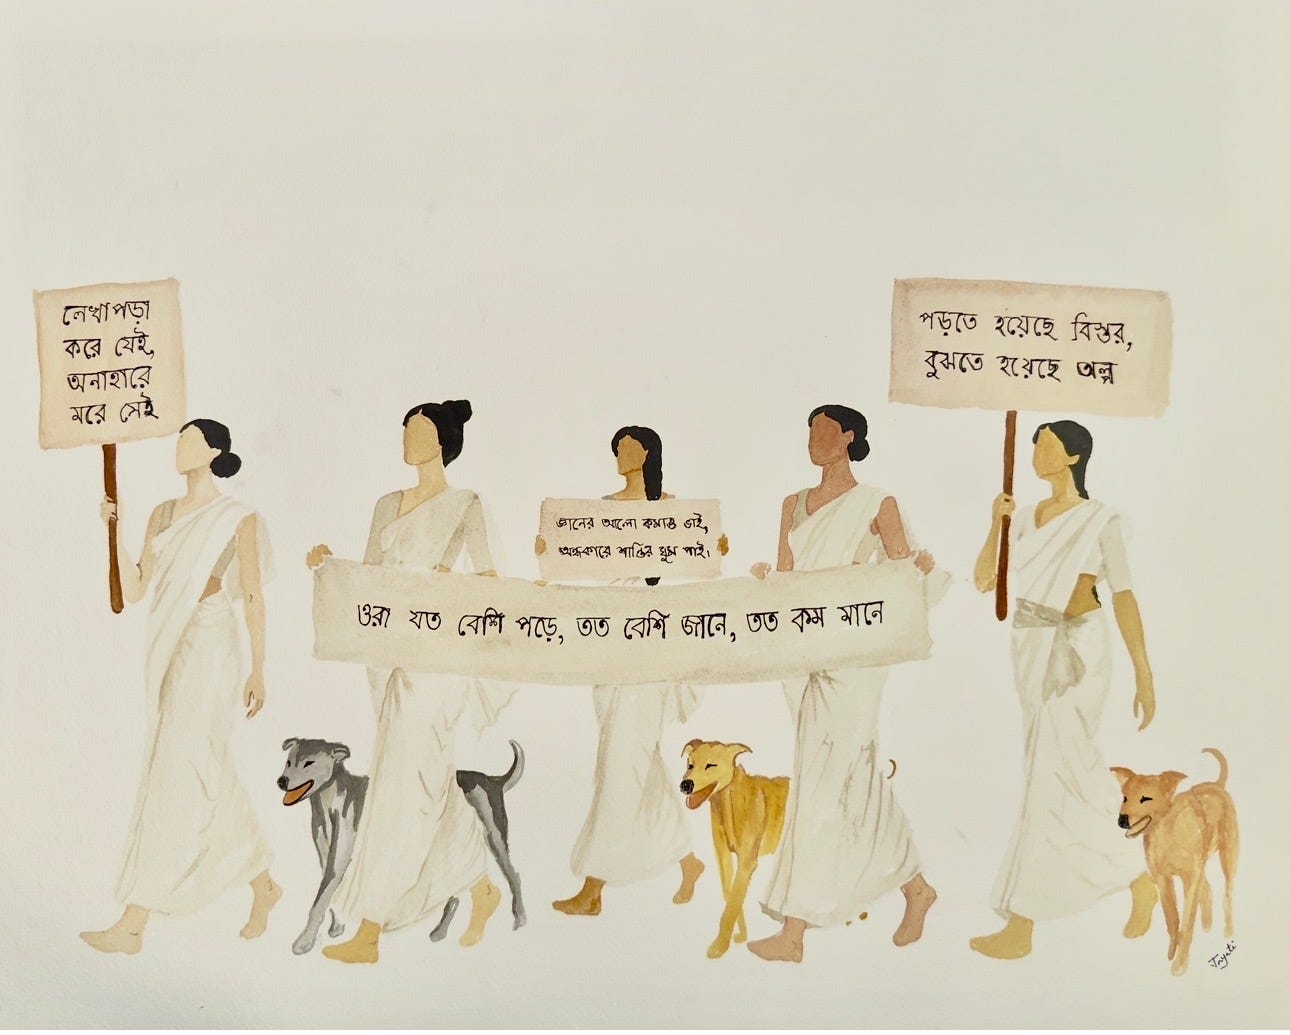 লেখাপড়া
করে যেই,
অনাহারে
মরে সেই
পড়তে হয়েছে বিস্তর,
বুঝতে হয়েছে অল্প
জ্ঞানের আলো কমাও ভাই,
অন্ধকারে শান্তির ঘুম পাই।
ওরা যত বেশি পড়ে, তত বেশি জানে, তত কম মানে
Jayati